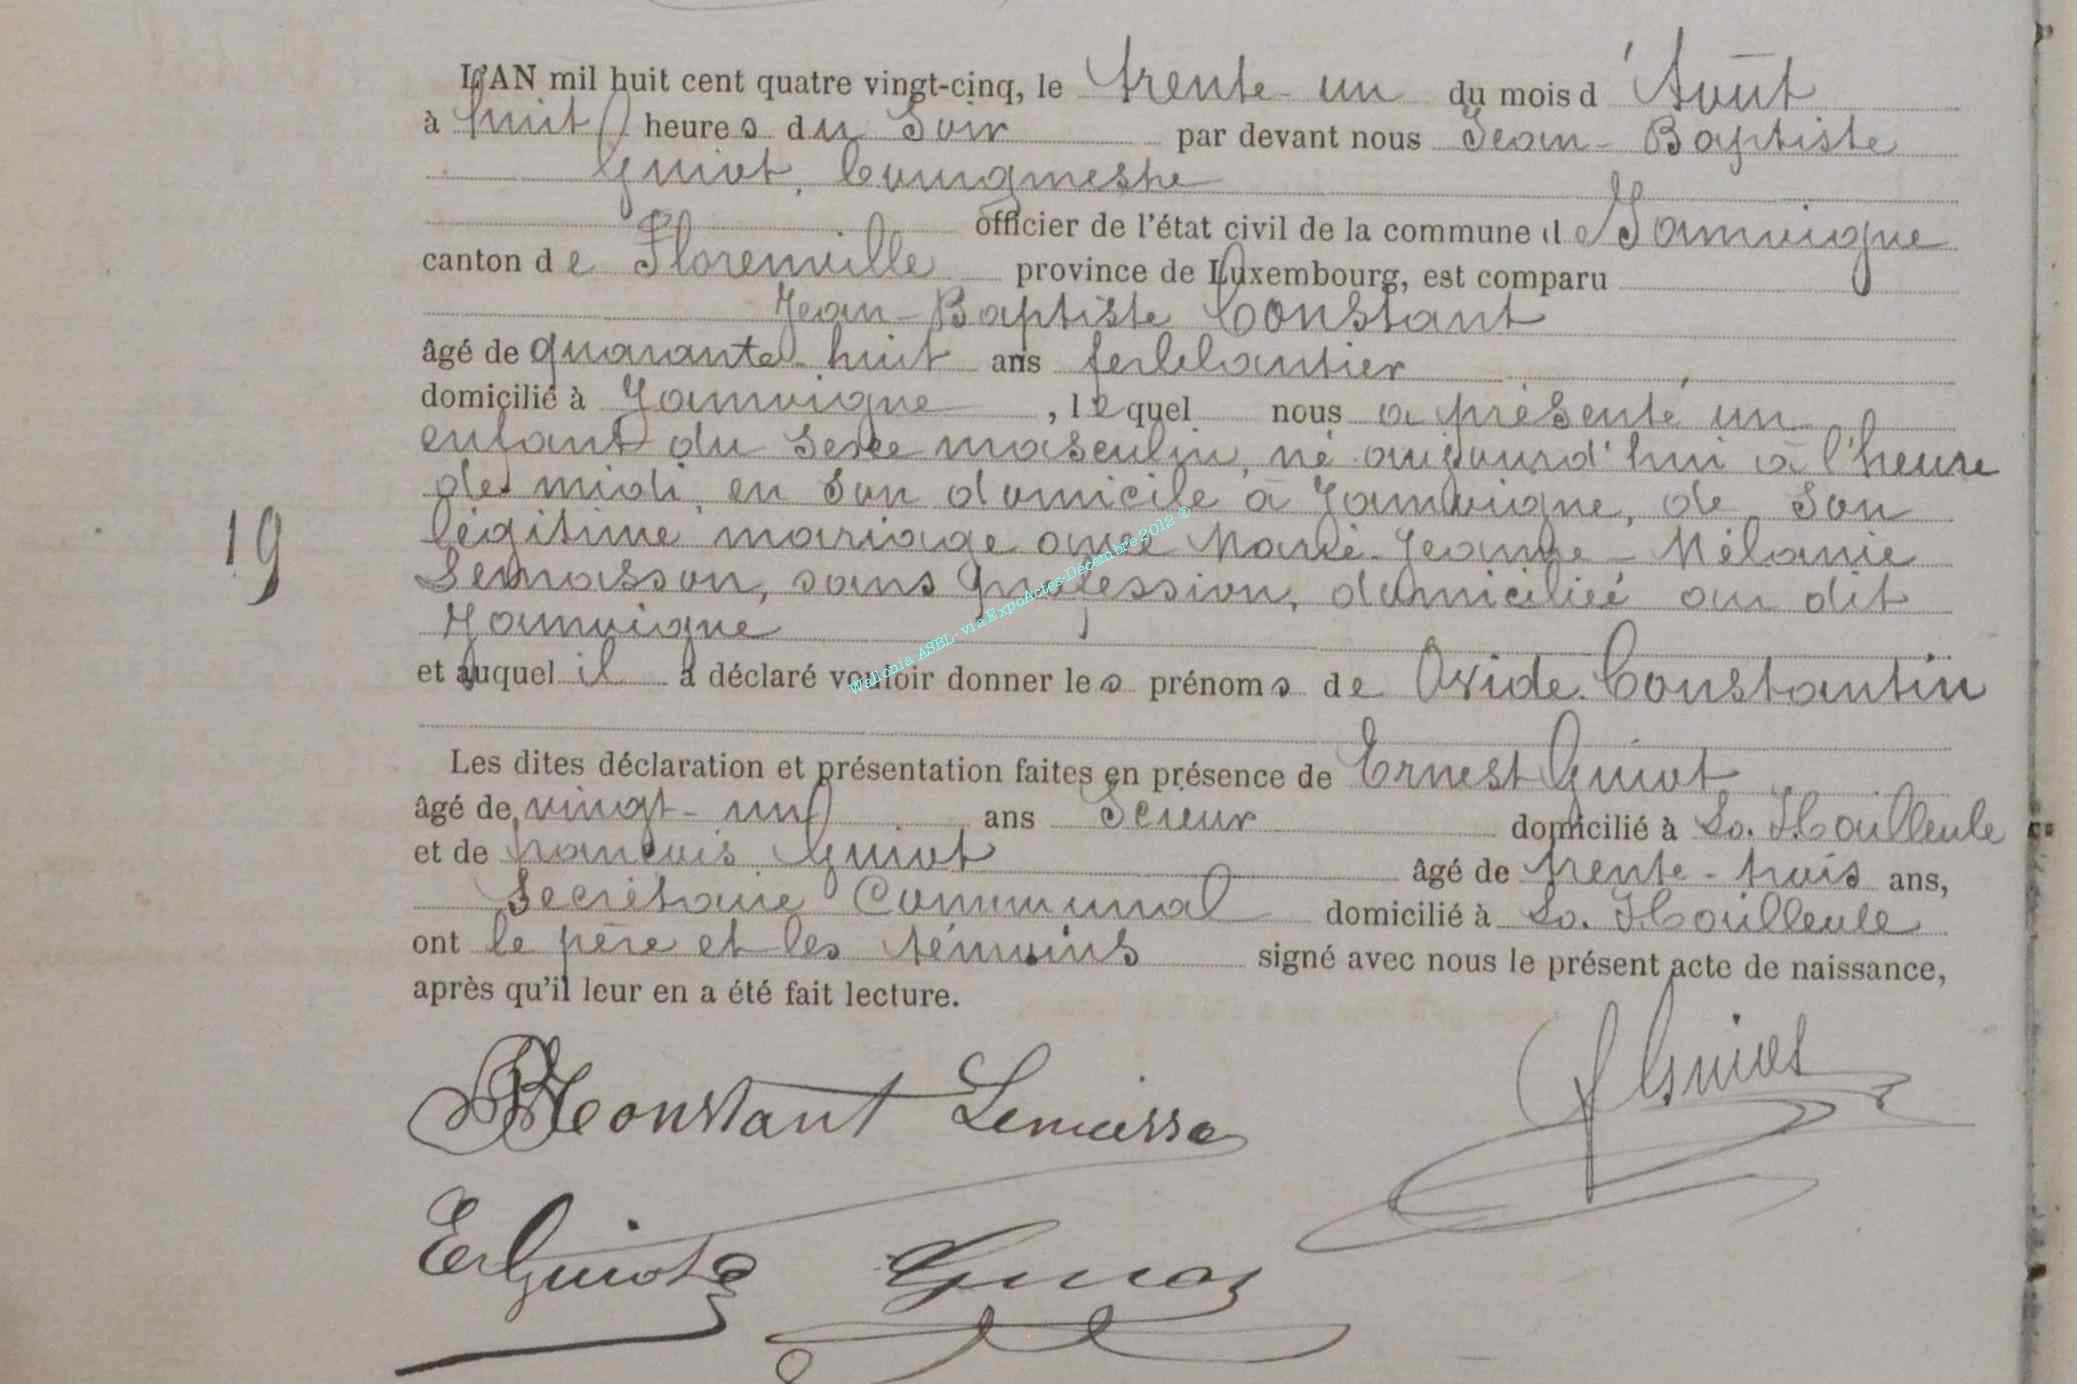 L'AN mil huit cent quatre vingt-cinq, le trente un du mois d'Août
à huit heures du Soir par devant nous Jean-Baptiste
Guiot, bourgmestre
officier de l'état civil de la commune de Jamoigne
canton de Florenville province de Luxembourg, est comparu
Jean-Baptiste Constant
âgé de quarante huit ans ferblantier
domicilié à Jamoigne, lequel nous a présenté un
enfant du sexe masculin, né aujourd'hui à l'heure
de midi, en son domicile à Jamoigne, de son
légitime mariage avec Marie-Jeanne-Mélanie
Lemasson, sans profession, domiciliée au dit
Jamoigne
et auquel il a déclaré vouloir donner les prénoms de Ovide Constantin
Les dites déclaration et présentation faites en présence de Ernest Guiot
âgé de vingt-un ans Scieur domicilié à La Hailleule
et de François Guiot âgé de trente-trois ans,
Secrétaire Communal domicilié à La Hailleule
ont le père et les témoins signé avec nous le présent acte de naissance,
après qu'il leur en a été fait lecture.
19
Walonia ASBL- via ExpoActes-Décembre 2012 ©
Constant
Guiot
E Guiot
Guiot